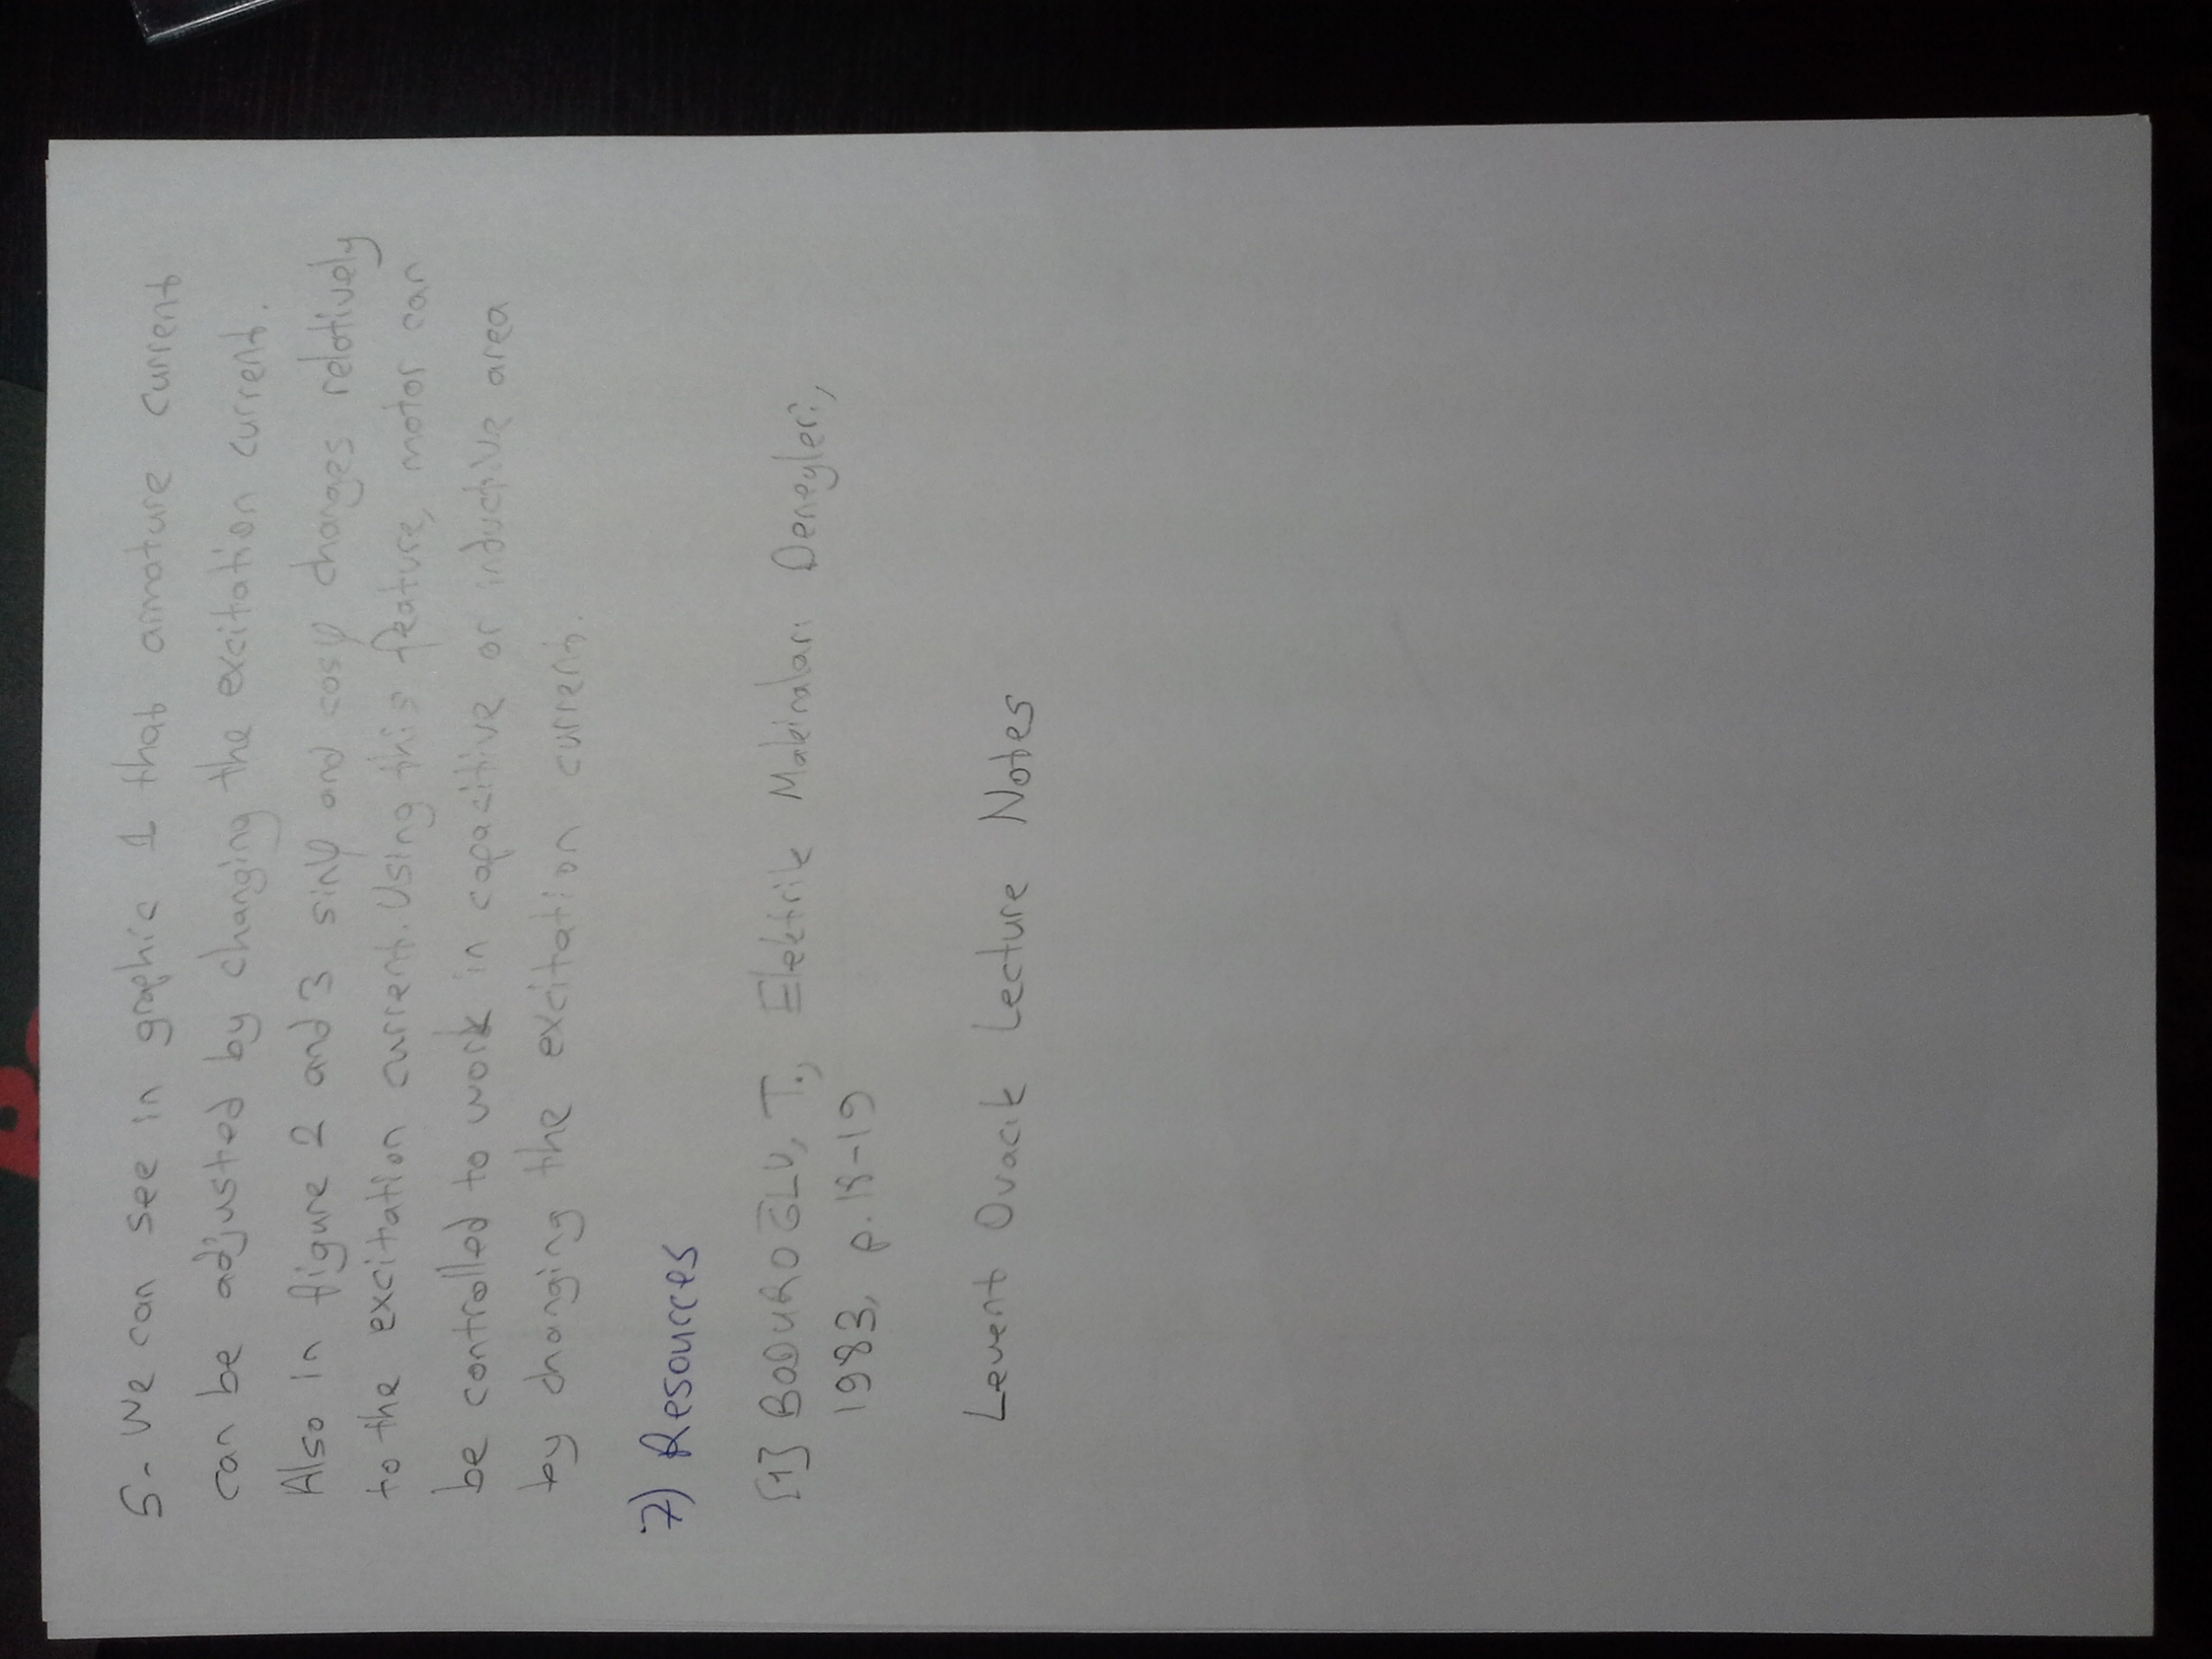 5- We can see in graphic 1 that armature current
can be adjusted by changing the excitation current.
Also in figure 2 and 3 sinφ and cosφ changes relatively
to the excitation current. Using this feature, motor can
be controlled to work in capacitive or inductive area
by changing the excitation current.
7) Resources
[1] BODUROĞLU, T., Elektrik Makinaları Deneyleri,
1983, p. 18-19
Levent Ovacık Lecture Notes